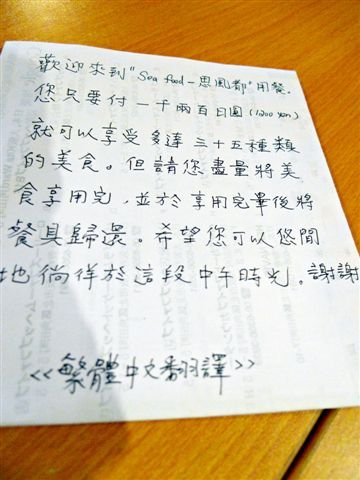 歡迎來到"Sea food-思風都"用餐.
您只要付一千兩百日圓(1200 yen)
就可以享受多達三十五種類
的美食。但請您盡量將美
食享用完,並於享用完畢後將
餐具歸還。希望您可以悠閒
地徜徉於這段中午時光。謝謝
<<繁體中文翻譯>>